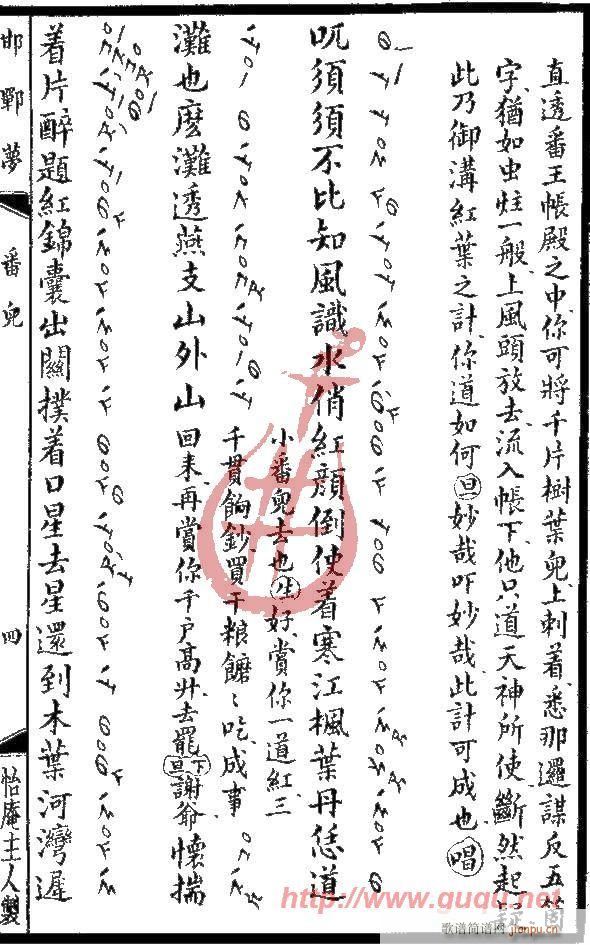 直透番王帳殿之中你可將千片樹葉兒上刺着悉那邏謀反五
字猶如虫蛀一般上風頭放去流入帳下他只道天神所使斷然起
此乃御溝紅葉之計你道如何旦妙哉吓妙哉此計可成也唱
呒須須不比知風識水俏紅顔倒使着寒江楓葉丹恁道
小番兒去也生好賞你一道紅三
千貫餉鈔買干粮饝〻吃成事
灘也麽灘透燕支山外山
回来再賞你千户高升去罷旦下謝爺
懷揣
着片醉題紅錦囊出關撲着口星去星還到木葉河灣遲
邯鄲夢
番兒
四
怡庵主人製
http://www.guqu.net
歌谱简谱网
jianpu.cn